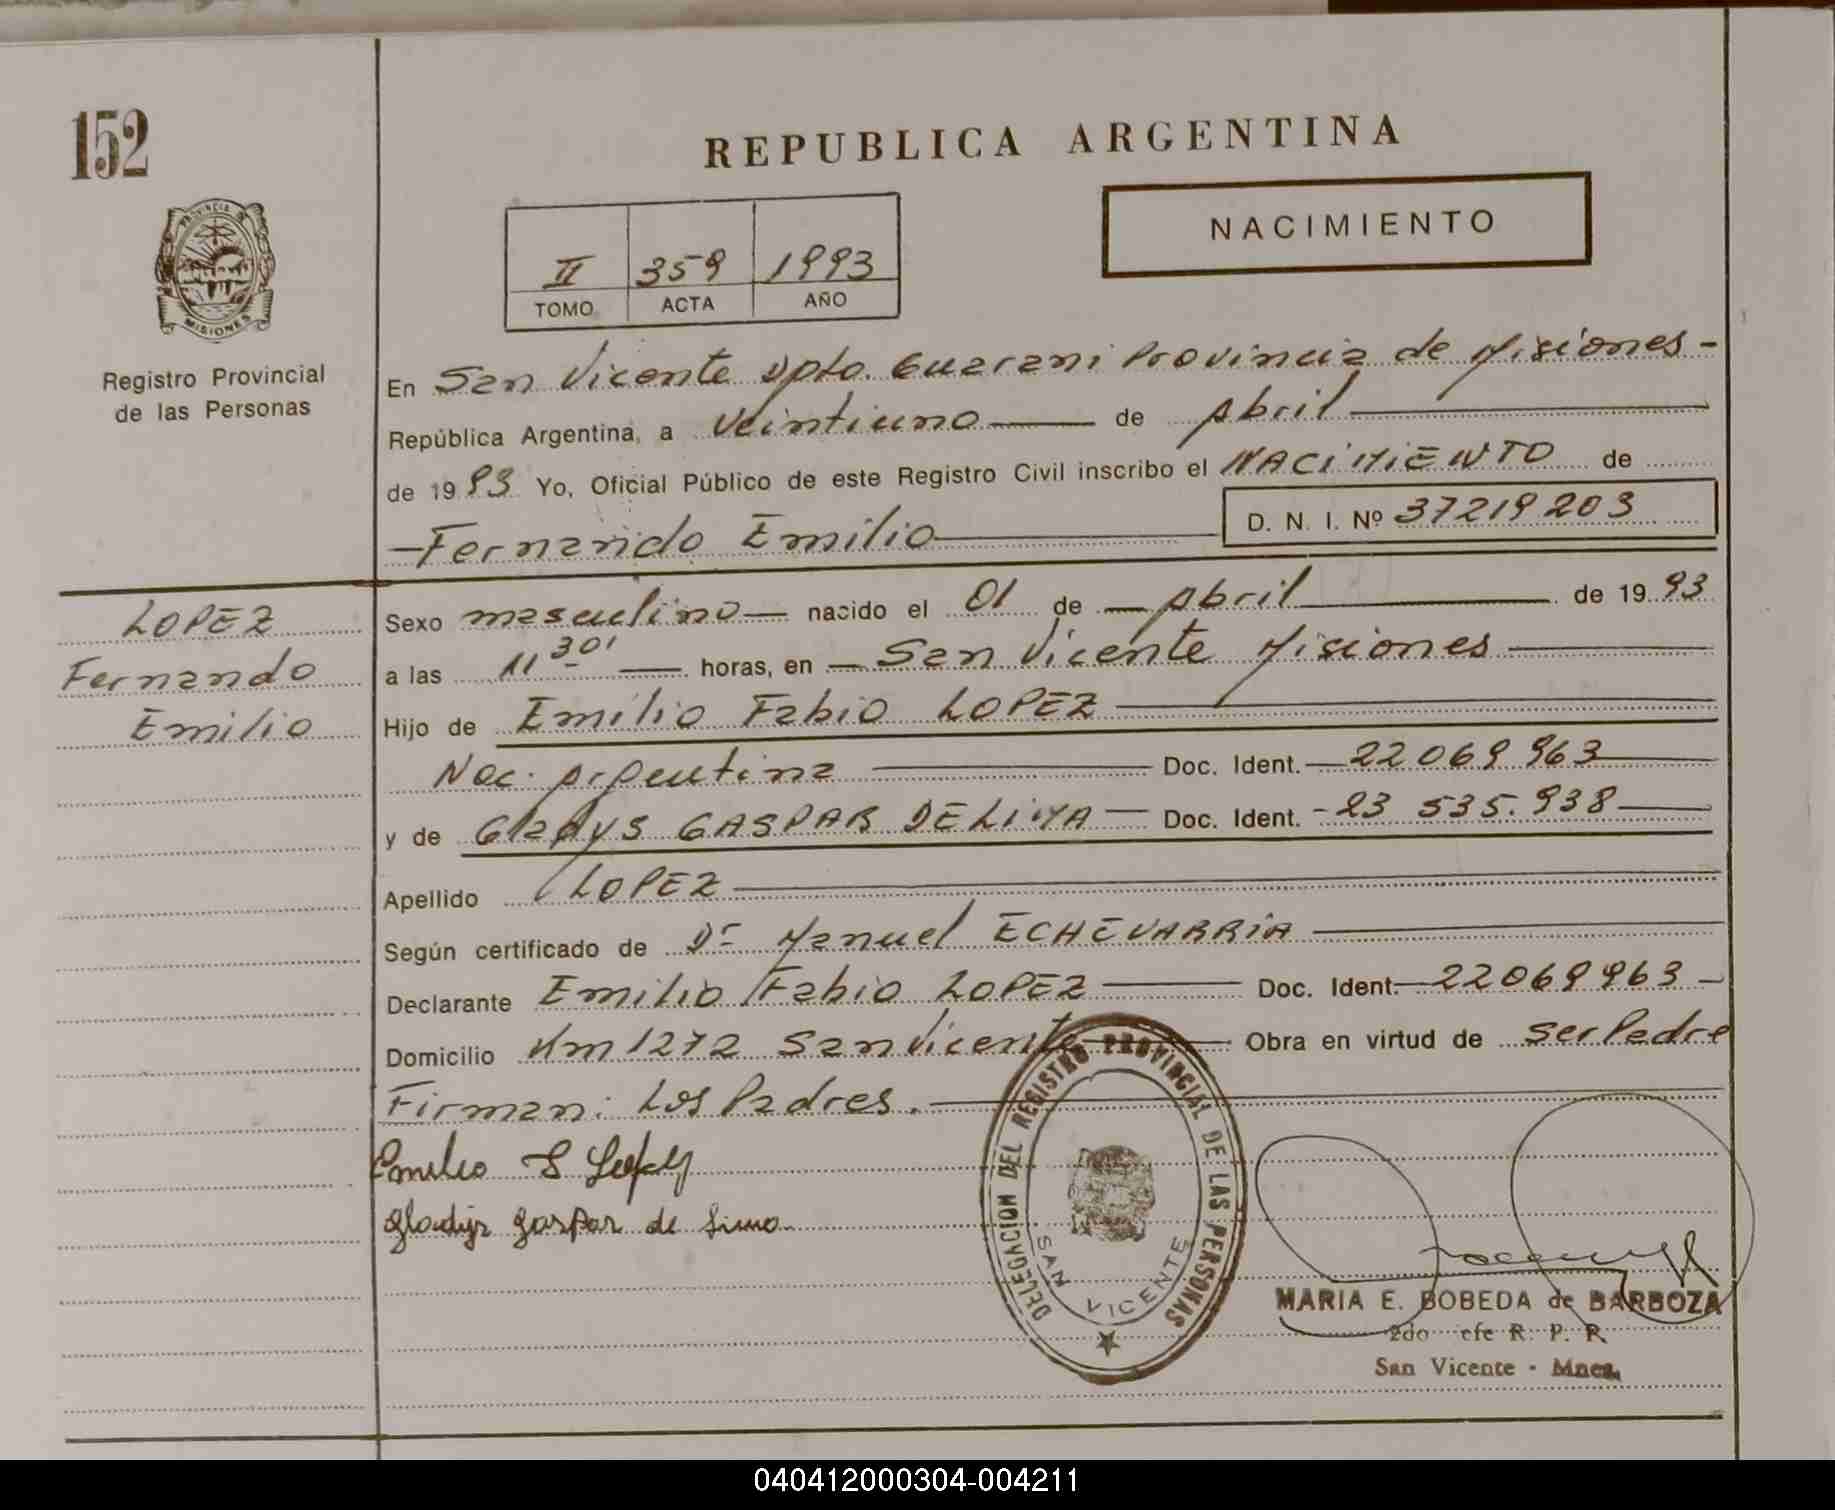 152
REPUBLICA ARGENTINA
PROVINCIA DE
MISIONES
Registro Provincial
de las Personas
NACIMIENTO
II 359 1993
TOMO ACTA AÑO
En San Vicente Dpto. Guarani Provincia de Misiones-
República Argentina, a veintiuno de Abril
de 1993 Yo, Oficial Público de este Registro Civil inscribo el NACIMIENTO de
Fernando Emilio D. N. I. Nº 37219203
LOPEZ
Fernando
Emilio
Sexo masculino nacido el 01 de Abril de 1993
a las 11 30' horas, en San Vicente Misiones
Hijo de Emilio Fabio LOPEZ
Nac. Argentina Doc. Ident. 22069963
y de Gladys GASPAR DELIMA Doc. Ident. 23 535.938
Apellido LOPEZ
Según certificado de Dr Manuel ECHEVARRIA
Declarante Emilio Fabio LOPEZ Doc. Ident. 22069963
Domicilio Km 1272 San Vicente Obra en virtud de ser Padre
Firman: Los Padres.
Emilio
Gladys Gaspar de Lima
DELEGACION DEL REGISTRO PROVINCIAL DE LAS PERSONAS
SAN VICENTE
MARIA E. BOBEDA de BARBOZA
2do efe R. P. R
San Vicente - Mnes.
040412000304-004211